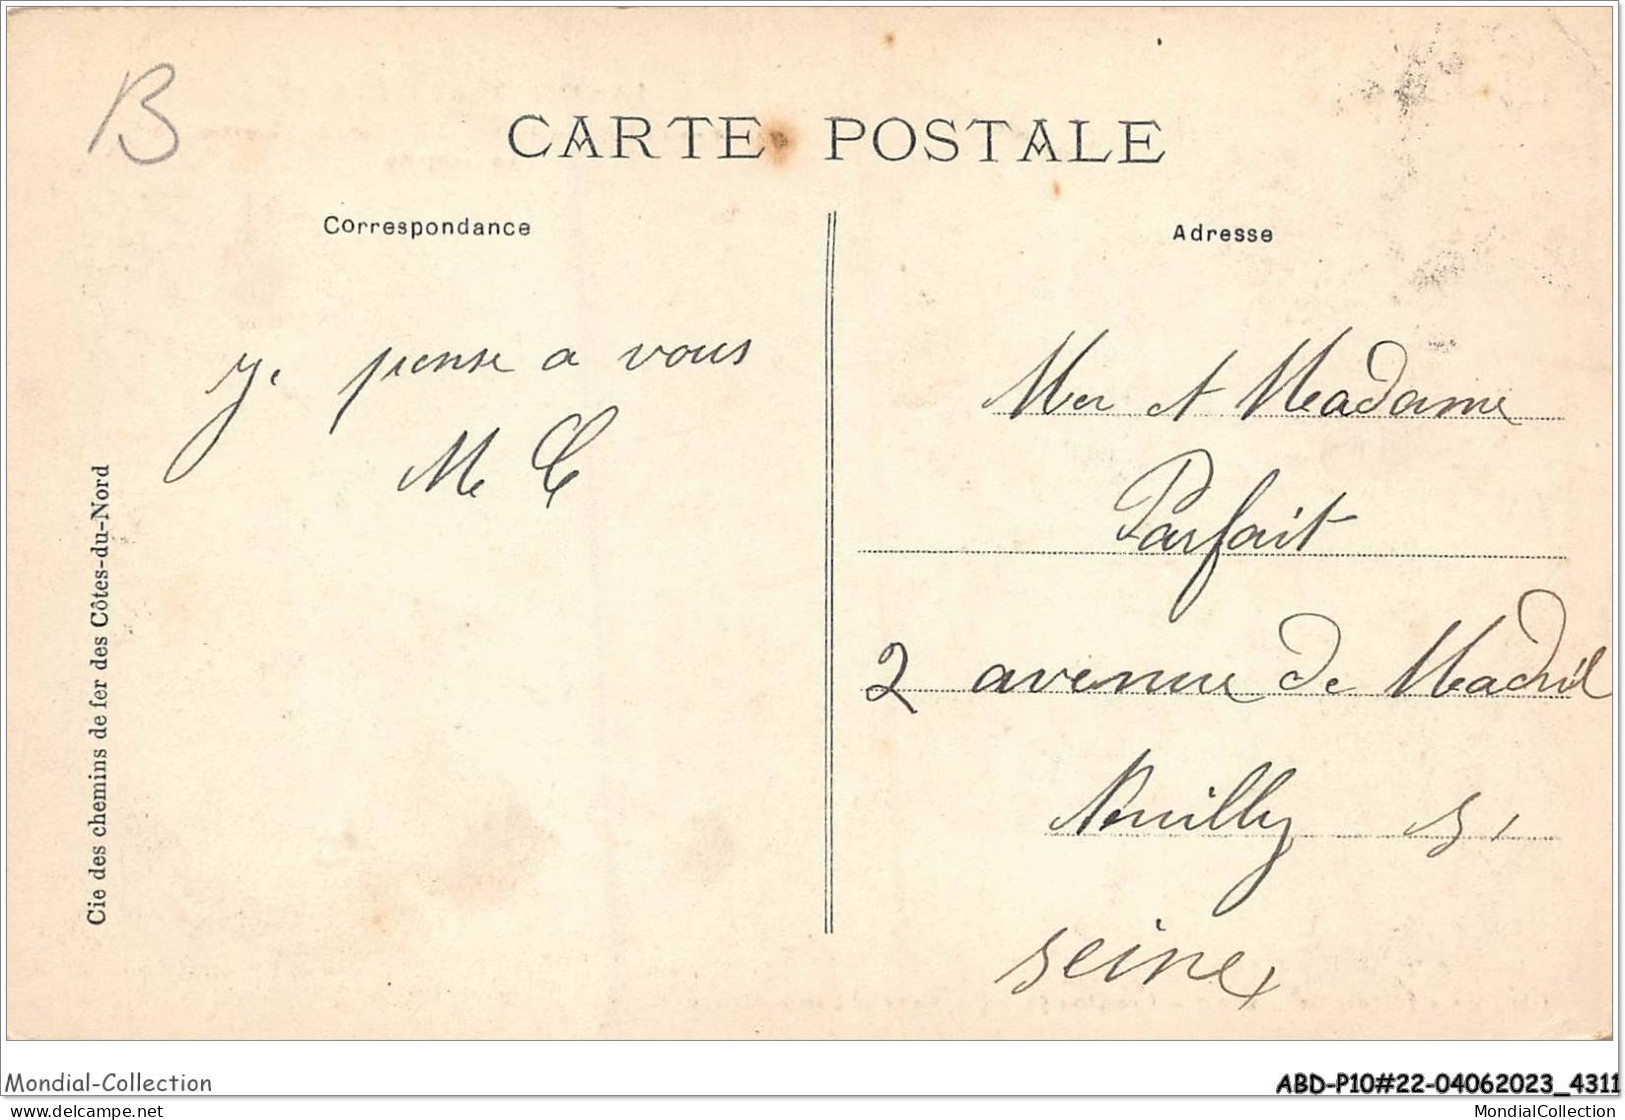 B
CARTE POSTALE
Correspondance
Adresse
je pense a vous
M C
Mr et Madame
Parfait
2 avenue de Madrid
Neuilly s/
seine
Cie des chemins de fer des Côtes-du-Nord
Mondial-Collection
ABD-P10#22-04062023_4311
www.delcampe.net
MondialCollection